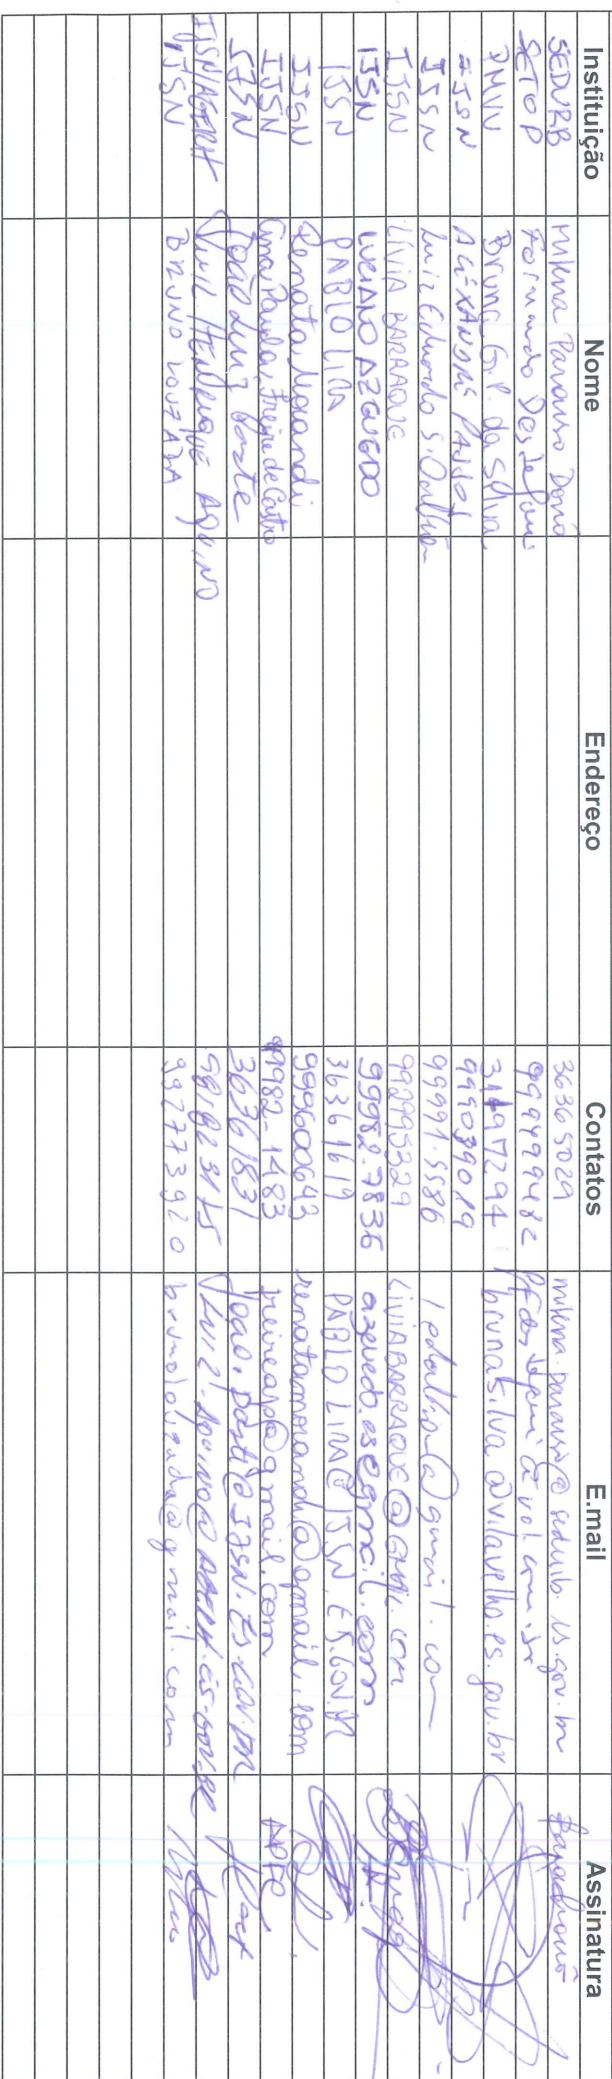 Instituição Nome Endereço Contatos E.mail Assinatura
SEDURB Milena Paraiso Donô 36365029
SETOP Fernando 999499482
PMVV Bruna G.P. da Silva 31497294 brunasilva@vilavelha.es.gov.br
IJSN ALEXANDRE PASSOS 999039019
IJSN Luiz Eduardo S. 99991.5586 @gmail.com
IJSN LÍVIA BARRAQUE 992995329 LIVIABARRAQUE@GMAIL.COM
IJSN LUCIANO AZEVEDO 99982-7836 azevedo.es@gmail.com
IJSN PABLO LIRA 36361619 PABLO.LIRA@IJSN.ES.GOV.BR
IJSN Renata Morandi 999600643 renatamorandi@gmail.com
IJSN Ana Paula Freire de Castro 99982-1483 freireapc@gmail.com APFC
IJSN João Luiz Paste 36361837 joao.paste@IJSN.ES.GOV.BR
IJSN/AGERH LUIZ HENRIQUE AQUINO 981823115 LUIZ.AQUINO@AGERH.ES.GOV.BR
IJSN BRUNO LOUZADA 992773920 @gmail.com